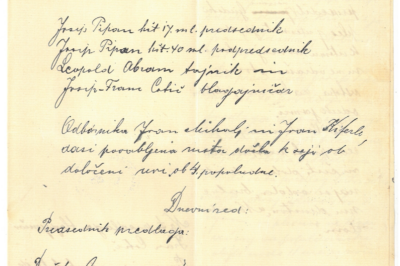 Josip Pipan hit 17 ml. predsednik
Josip Pipan hit 40 ml. podpredsednik
Leopold Abram tajnik in
Josip-Franc Cotič blagajničar
Odbornika Ivan Mihalj in Ivan
dasi povabljena nista došla k seji ob
določeni uri ob 4 popoludne.
Dnevni red:
Predsednik predlaga: